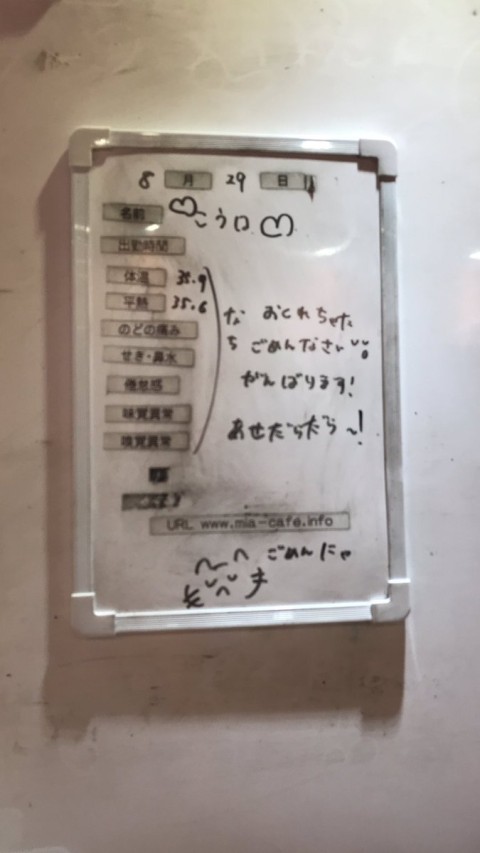 8 月 29 日
名前 こうロ
出勤時間
体温 35.9
平熱 35.6
のどの痛み
せき・鼻水
倦怠感
味覚異常
嗅覚異常
な おくれちゃた
ち ごめんなさい
がんばります!
あせだらだら〜!
URL www.mia-cafe.info
ごめんにゃ